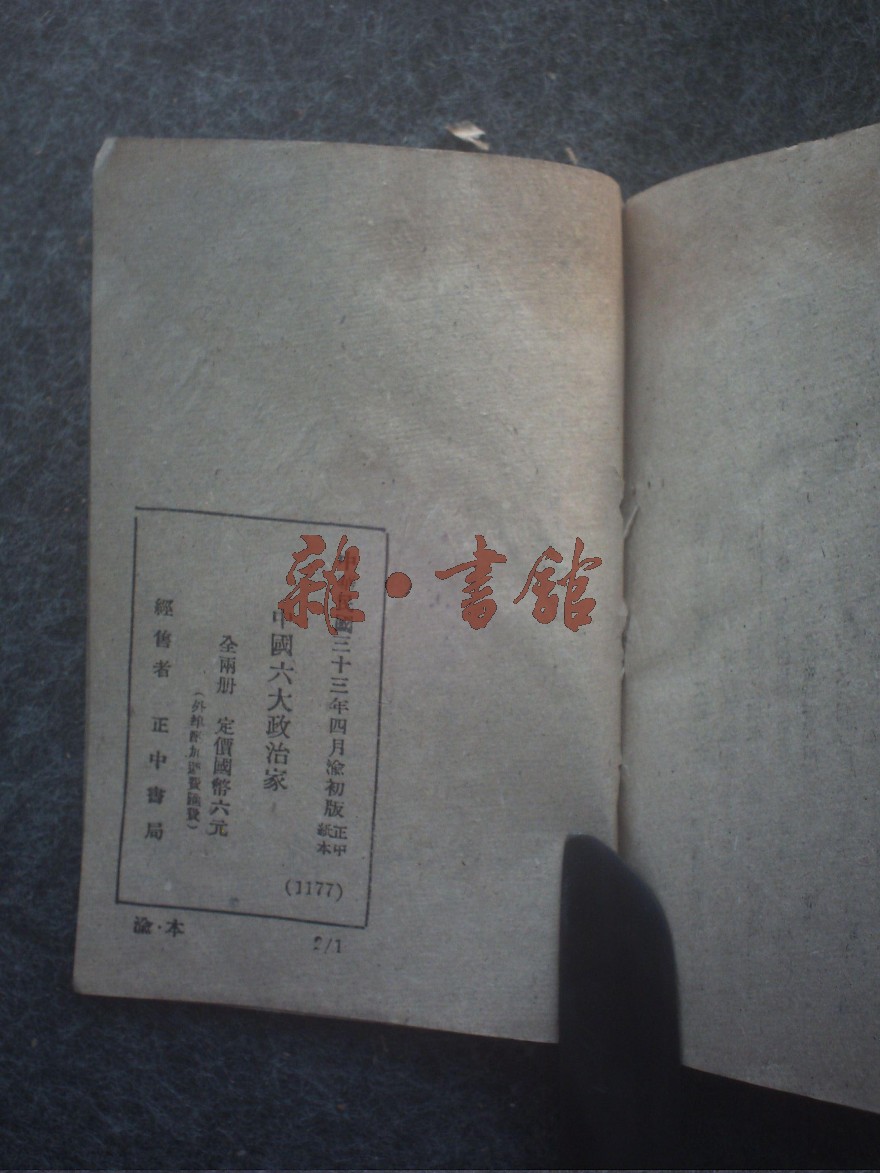 中華民國三十三年四月渝初版 正中紙本
中國六大政治家
全兩册 定價國幣六元
(外埠酌加運費滙費)
經售者 正中書局
(1177)
渝·本
2/1
雜·書館